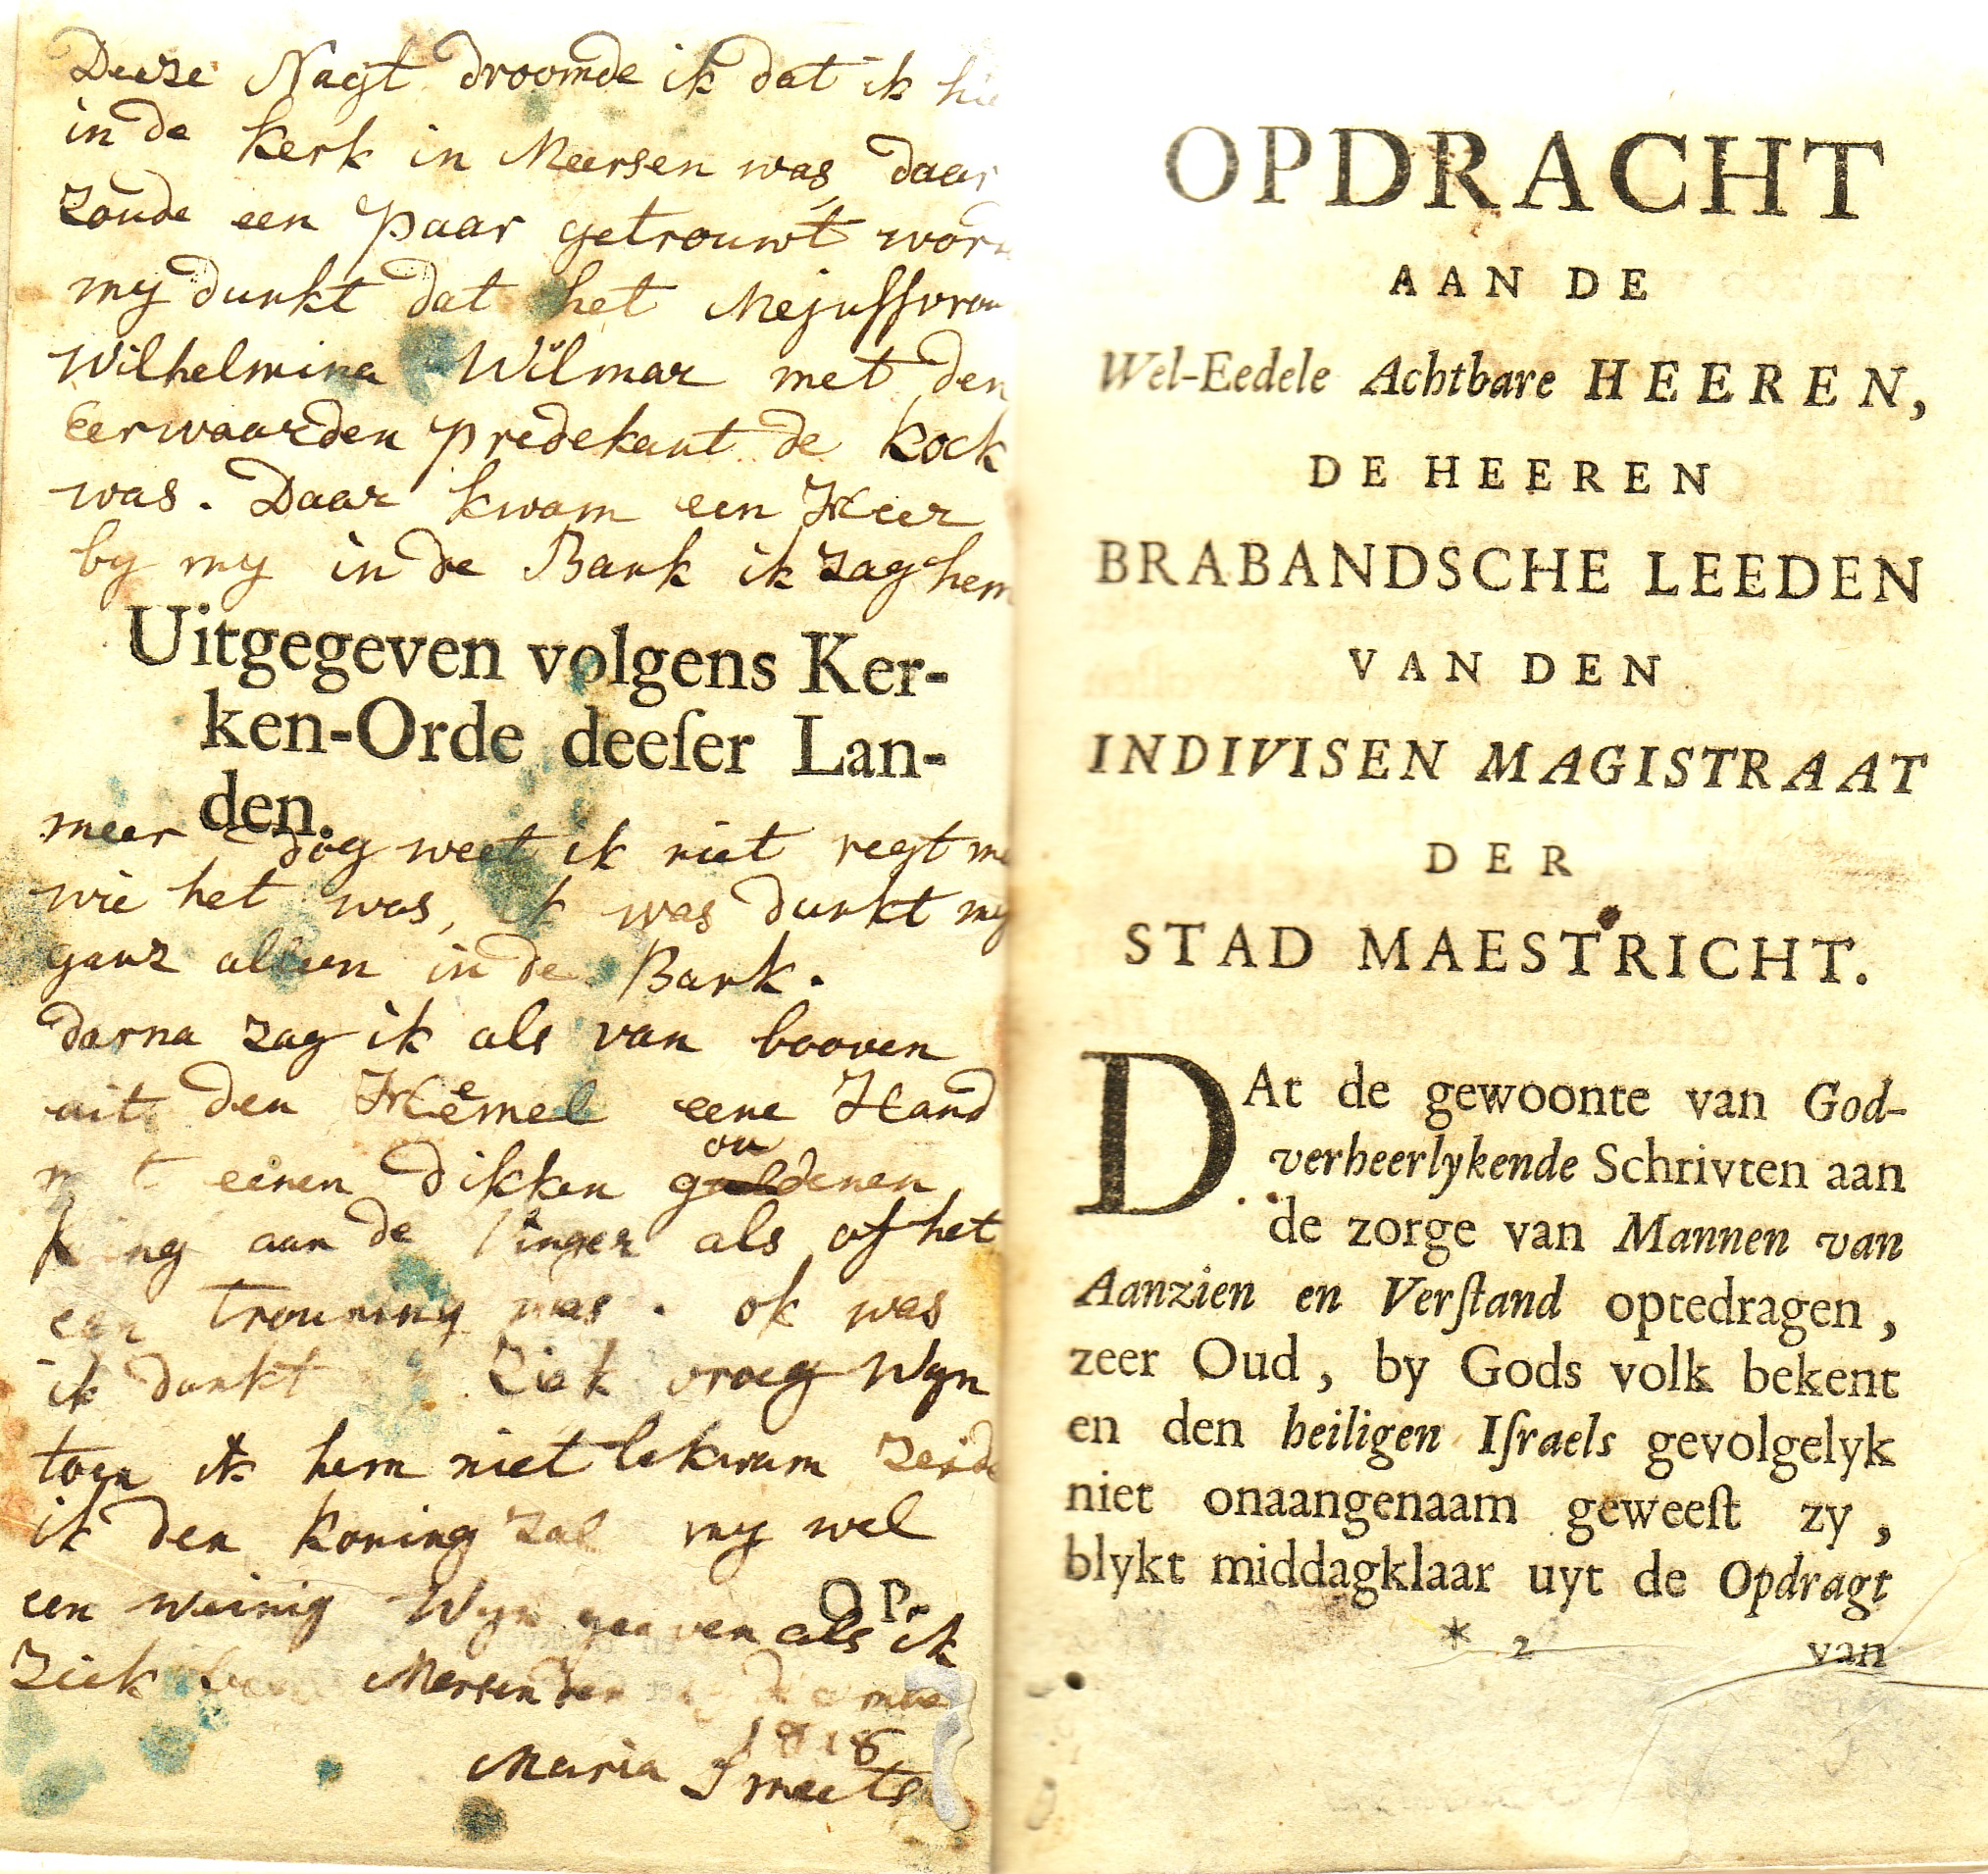 Deeze Nagt droomde ik dat ik
in de Kerk in Meersen was, daar
zoude een Paar getrouwt
my dunkt dat het Mejuffvrou
Wilhelmina Wilmar met den
Eerwaarden predekant de Kock
was. Daar kwam een Heer
by my in de Bank ik zag hem
Uitgegeven volgens Ker-
ken-Orde deeſer Lan-
den.
meer dog weet ik niet regt
wie het was, ik was dunkt my
ganz alleen in de Bank.
darna zag ik als van booven
uit den Hemel eene Hand
einen dikken goudenen
Ring aan de Vinger als of het
een trouring was. ok was
ik dunkt ziek vroeg Wyn
toen ik hem niet bekwam zeide
ik den Koning zal my wel
een weinig Wyn geeven als ik
OP-
ziek Mersen den
1818
Maria Smeets
OPDRACHT
AAN DE
Wel-Eedele Achtbare HEEREN,
DE HEEREN
BRABANDSCHE LEEDEN
VAN DEN
INDIVISEN MAGISTRAAT
DER
STAD MAESTRICHT.
DAt de gewoonte van God-
verheerlykende Schrivten aan
de zorge van Mannen van
Aanzien en Verſtand optedragen,
zeer Oud, by Gods volk bekent
en den heiligen Iſraels gevolgelyk
niet onaangenaam geweeſt zy,
blykt middagklaar uyt de Opdragt
* 2 van